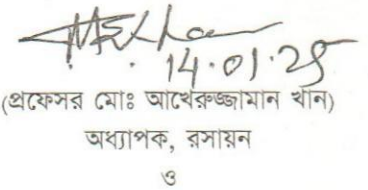 14.01.25
(প্রফেসর মোঃ আখেরুজ্জামান খান)
অধ্যাপক, রসায়ন
ও